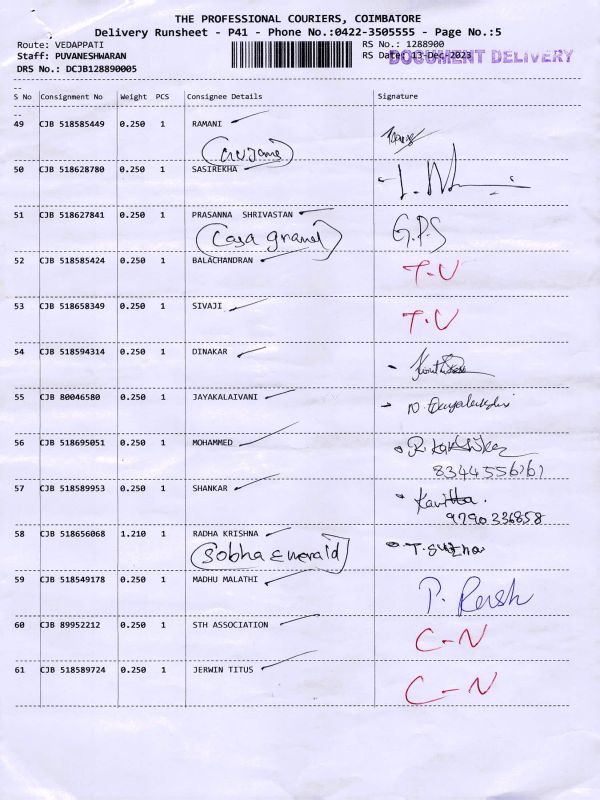 THE PROFESSIONAL COURIERS, COIMBATORE
Delivery Runsheet - P41 - Phone No.:0422-3505555 - Page No.:5
Route: VEDAPPATI RS No.: 1288900
Staff: PUVANESHWARAN RS Date: 13-Dec-2023 DOCUMENT DELIVERY
DRS No.: DCJB128890005
S No Consignment No Weight PCS Consignee Details Signature
49 CJB 518585449 0.250 1 RAMANI
50 CJB 518628780 0.250 1 SASIREKHA
51 CJB 518627841 0.250 1 PRASANNA SHRIVASTAN G.P.S
Casa grand
52 CJB 518585424 0.250 1 BALACHANDRAN T-U
53 CJB 518658349 0.250 1 SIVAJI T-U
54 CJB 518594314 0.250 1 DINAKAR
55 CJB 80046580 0.250 1 JAYAKALAIVANI
56 CJB 518695051 0.250 1 MOHAMMED
57 CJB 518589953 0.250 1 SHANKAR Kavitha.
9790336858
58 CJB 518656068 1.210 1 RADHA KRISHNA
Sobha Emerald
59 CJB 518549178 0.250 1 MADHU MALATHI
60 CJB 89952212 0.250 1 STH ASSOCIATION C-N
61 CJB 518589724 0.250 1 JERWIN TITUS C-N